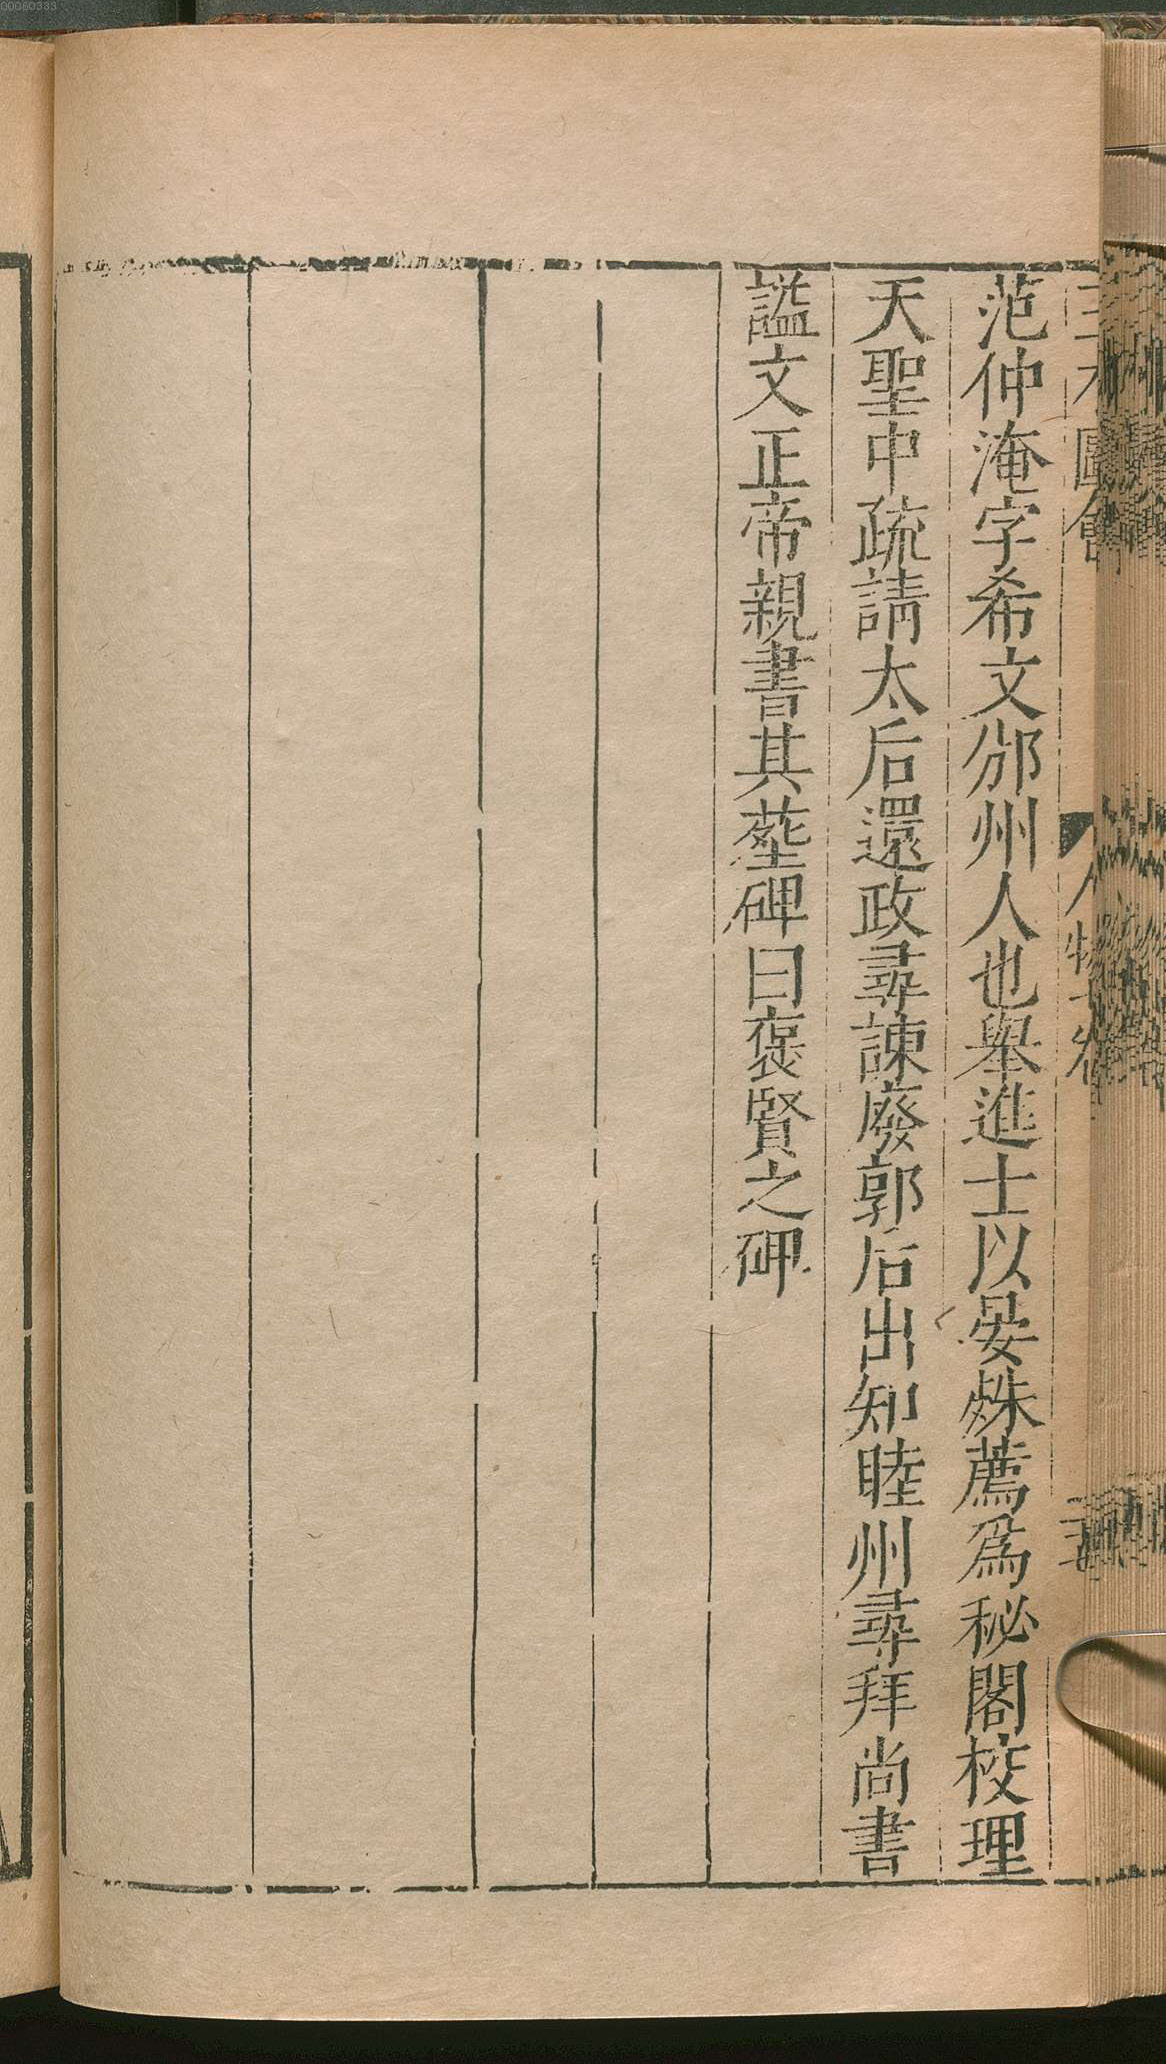 00060383
三才圖會
人物七卷
范仲淹字希文邠州人也舉進士以晏殊薦爲秘閣校理
天聖中疏請太后還政尋諫廢郭后出知睦州尋拜尚書
謚文正帝親書其墓碑曰褒賢之碑